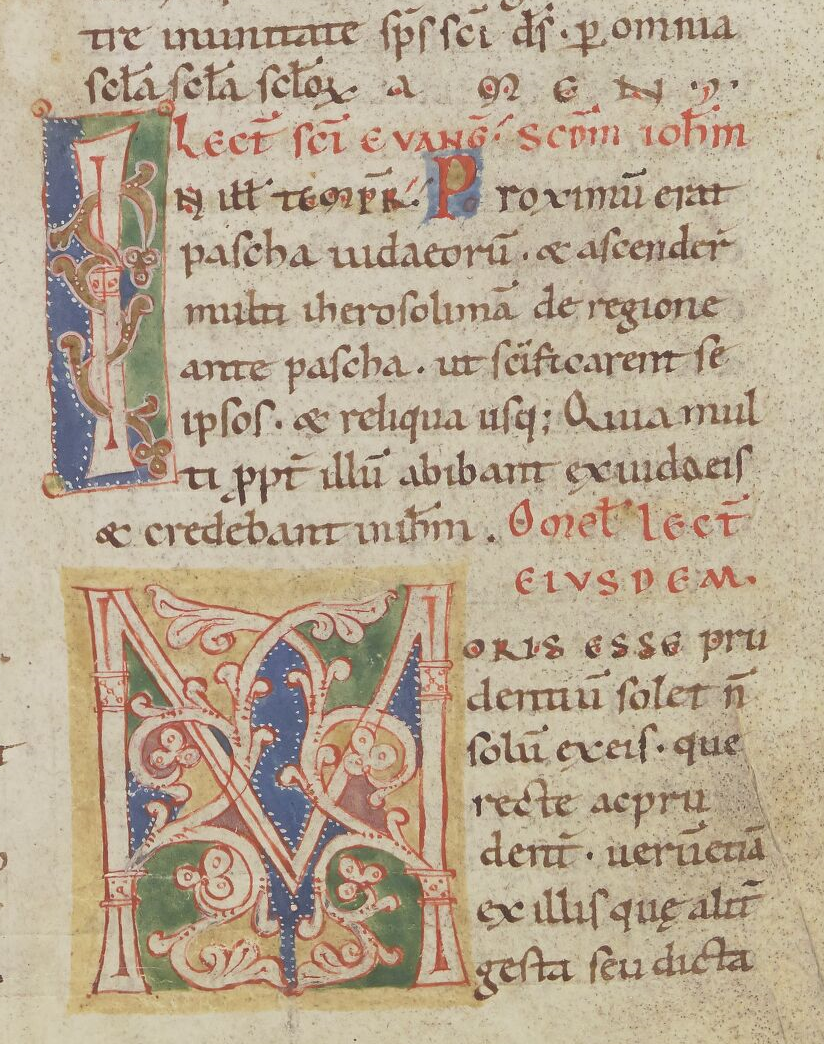 tre in unitate sp̄s sc̄i ds̄. ꝑ omnia
scl̄a scl̄a scl̄oꝝ a m e n.
Lect̄ sc̄i evanḡ. scdm̄ ioh̄m
IN ill̄ temp̄r. Proximū erat
pascha iudaeorū. & ascender̄
multi iherosolimā de regione
ante pascha. ut sc̄ificarent se
ipsos. & reliqua usq; Quia mul
ti ꝓpt̄ illū abibant ex iudaeis
& credebant in ih̄m. Omel̄ lect̄
EIUSDEM.
MORIS ESSE pru
dentiū solet n̄
solū ex eis. que
recte ac pru
dent̄. uerū etiā
ex illis quę alit̄
gesta seu dicta